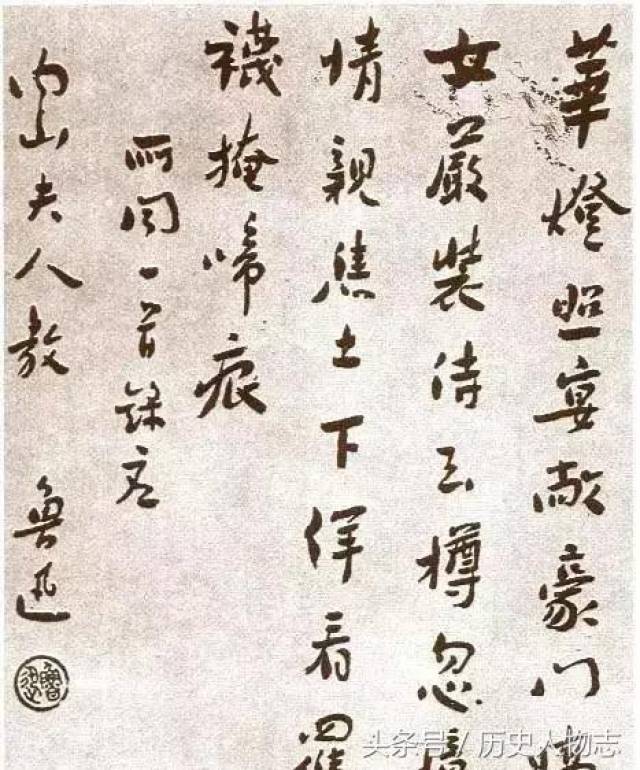 華燈照宴敞豪門
女嚴裝侍玉樽忽憶
情親焦土下佯看羅
襪掩啼痕
所聞一首錄應
內山夫人教
魯迅
魯迅
头条号 / 历史人物志